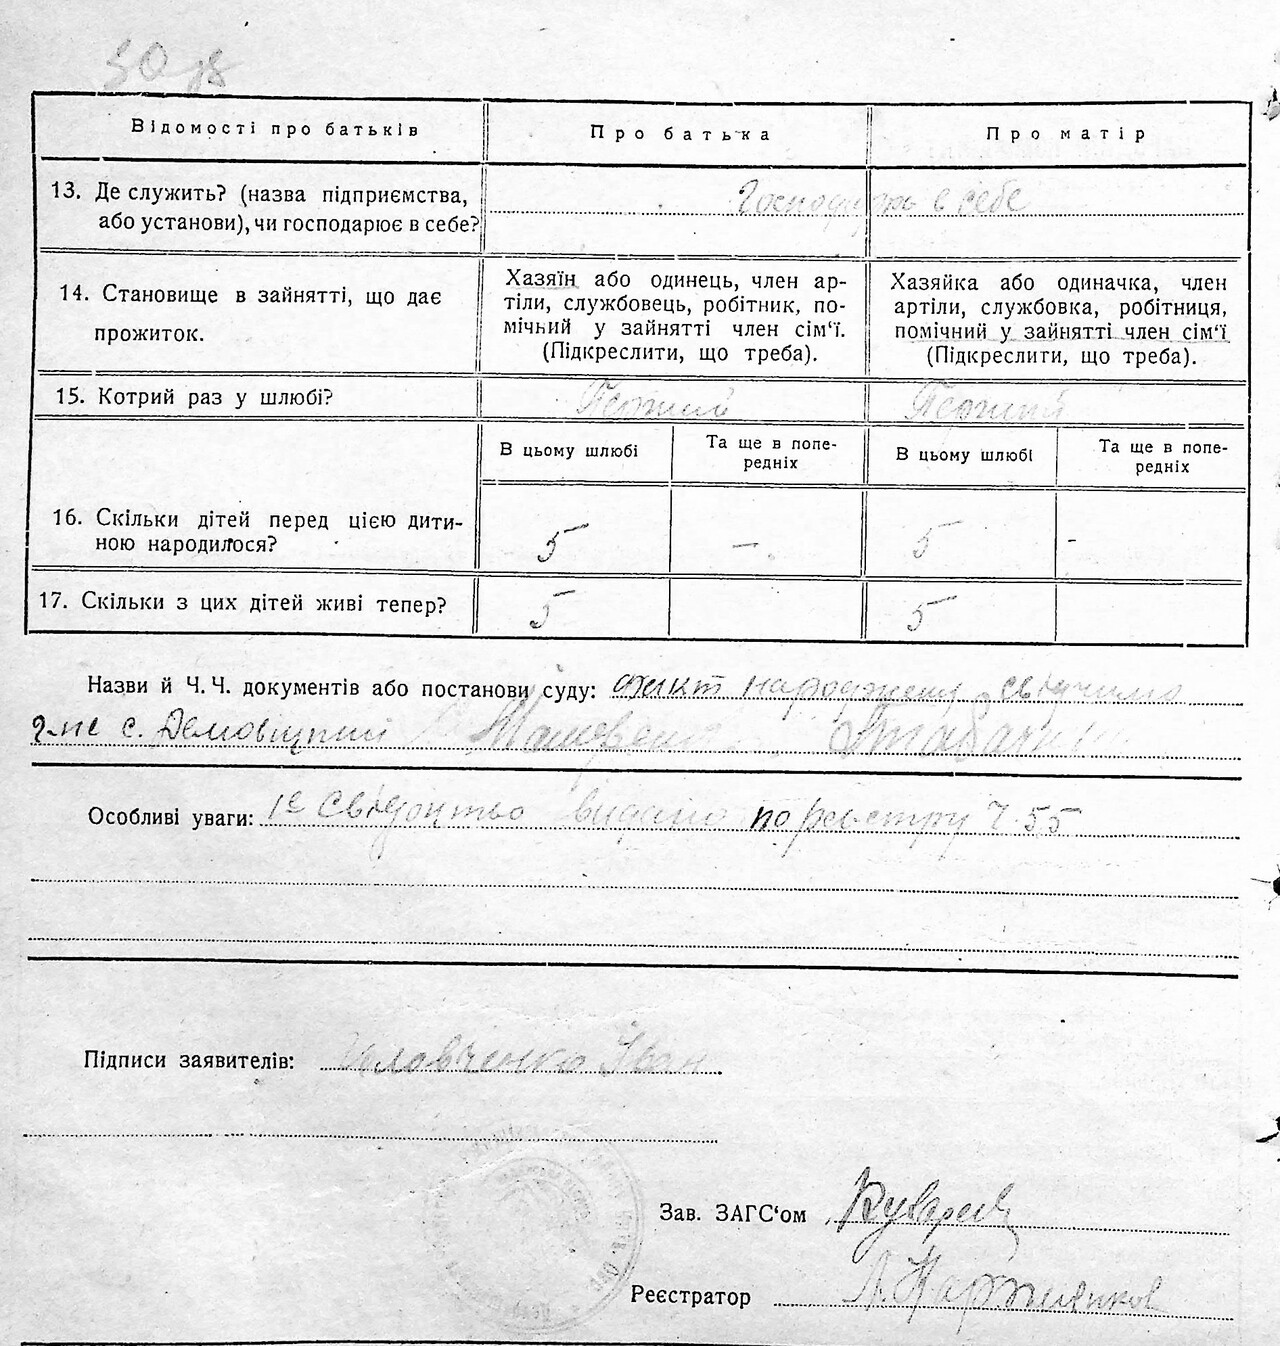 50 зв
Відомості про батьків
Про батька
Про матір
13. Де служить? (назва підприємства,
або установи), чи господарює в себе?
Господарь в себе
14. Становище в зайнятті, що дає
прожиток.
Хазяїн або одинець, член ар-
тіли, службовець, робітник, по-
мічний у зайнятті член сім‘ї.
(Підкреслити, що треба).
Хазяйка або одиначка, член
артіли, службовка, робітниця,
помічний у зайнятті член сім‘ї
(Підкреслити, що треба).
15. Котрий раз у шлюбі?
Перший
Перший
В цьому шлюбі
Та ще в попе-
редніх
В цьому шлюбі
Та ще в попе-
редніх
16. Скільки дітей перед цією дити-
ною народилося?
5
–
5
-
17. Скільки з цих дітей живі тепер?
5
5
Назви й Ч. Ч. документів або постанови суду: факт народження
с.
Особливі уваги: 1е Свідоцтво видано по реєстру Ч. 55
Підписи заявителів: Іван
Зав. ЗАГС‘ом
Реєстратор